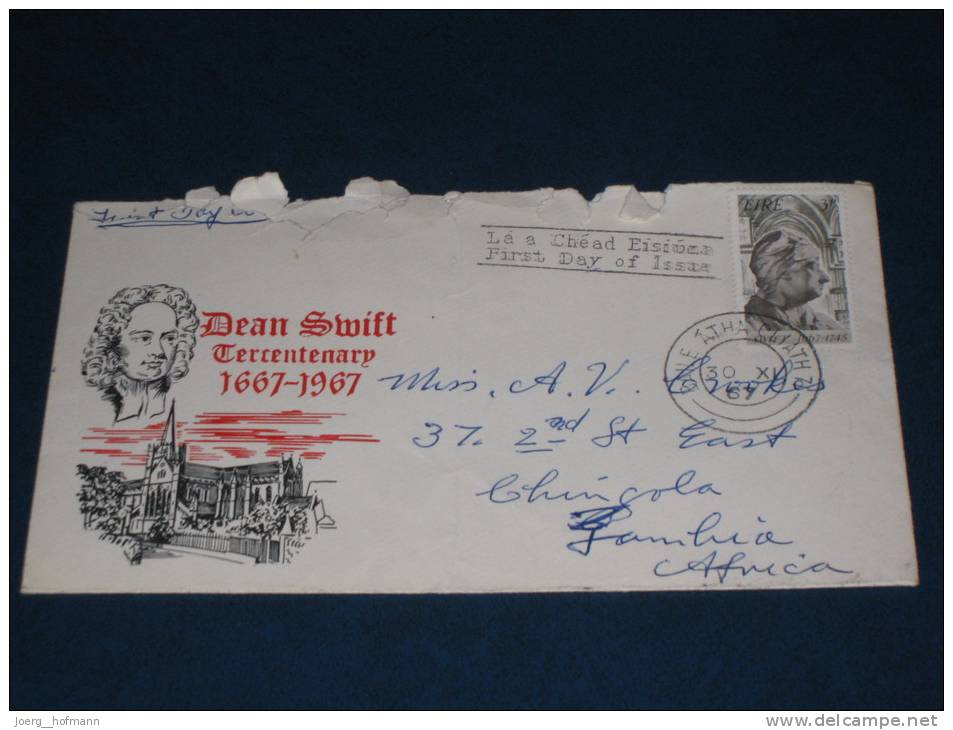 First Day
Lá a Chéad Eisiúna
First Day of Issue
ÉIRE 3p
SWIFT 1667-1745
BAILE ÁTHA CLIATH
30 XI
67
Dean Swift
Tercentenary
1667-1967
Miss. A. V.
37. 2nd St East
Chingola
Zambia
Africa
joerg__hofmann
www.delcampe.net